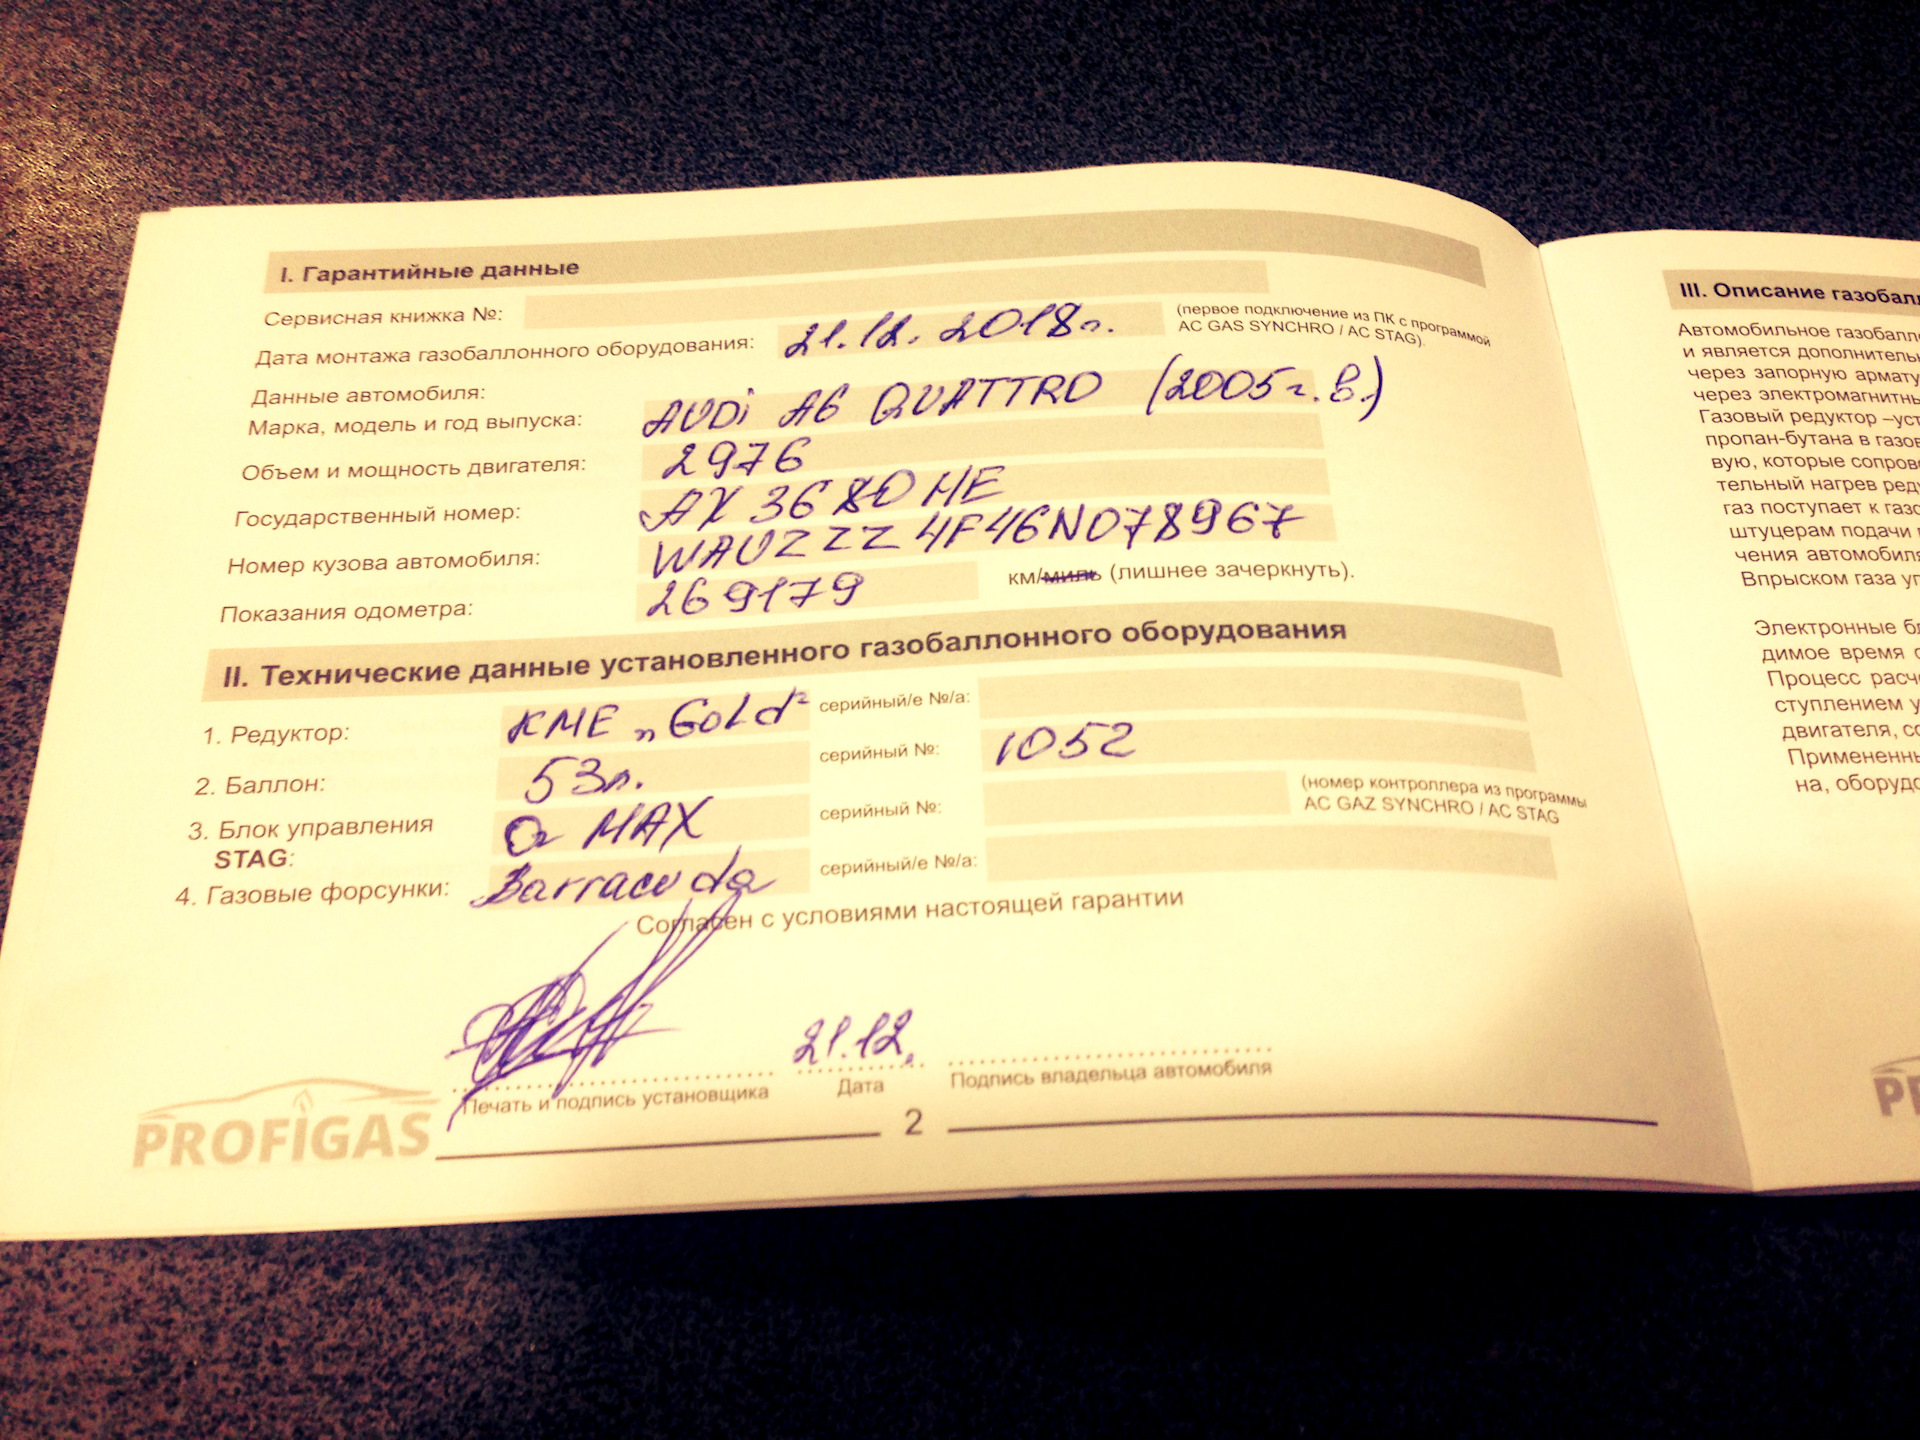 I. Гарантийные данные
Сервисная книжка №:
Дата монтажа газобаллонного оборудования: 21.12.2018г. (первое подключение из ПК с программой
AC GAS SYNCHRO / AC STAG).
Данные автомобиля:
Марка, модель и год выпуска: AUDi A6 QUATTRO (2005г.в.)
Объем и мощность двигателя: 2976
Государственный номер: AX 3680 HE
Номер кузова автомобиля: WAUZZZ4F46N078967
Показания одометра: 269179 км/миль (лишнее зачеркнуть).
II. Технические данные установленного газобаллонного оборудования
1. Редуктор: KME „Gold" серийный/е №/а:
2. Баллон: 53л. серийный №: 1052
3. Блок управления
STAG: Q MAX серийный №: (номер контроллера из программы
AC GAZ SYNCHRO / AC STAG
4. Газовые форсунки: Barracuda серийный/е №/а:
Согласен с условиями настоящей гарантии
21.12.
Печать и подпись установщика Дата Подпись владельца автомобиля
PROFIGAS
2
III. Описание газобалл
Автомобильное газобалло
и является дополнитель
через запорную армату
через электромагнитны
Газовый редуктор –уст
пропан-бутана в газов
вую, которые сопрово
тельный нагрев реду
газ поступает к газо
штуцерам подачи
чения автомобиля
Впрыском газа уп
Электронные бл
димое время с
Процесс расче
ступлением у
двигателя, со
Примененны
на, оборудо